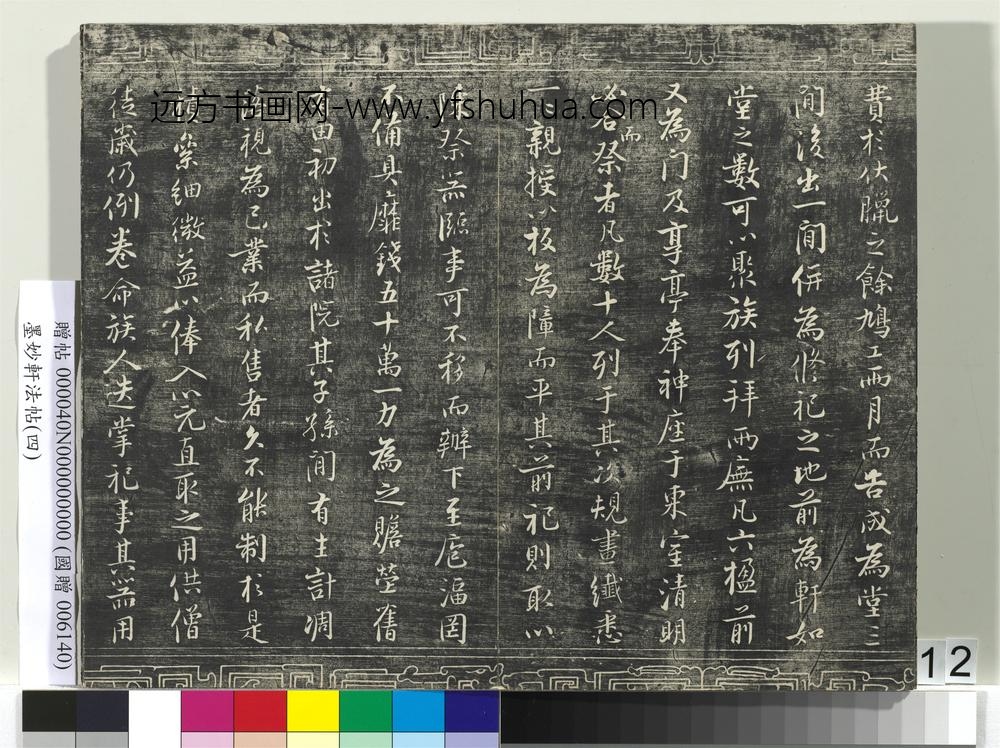 費於伏臘之餘鳩工兩月而告成為堂三
間後出一間併為脩祀之地前為軒如
堂之數可以聚族列拜兩廡凡六楹前
又為門及享亭奉神座于東室清明
必合祭而者凡數十人列于其次規畫纖悉
一親授以板為障而平其前祀則取以
祭器臨事可不移而辦下至庖湢罔
不備具靡錢五十萬一力為之贍塋舊
田初出於諸院其子孫間有生計凋
視為己業而私售者久不能制於是
縈細微益以俸入以元直取之用供僧
徒歲仍例卷命族人迭掌祀事其器用
远方书画网-www.yfshuhua.com
贈帖 000040N000000000 (國贈 006140)
墨妙軒法帖(四)
12